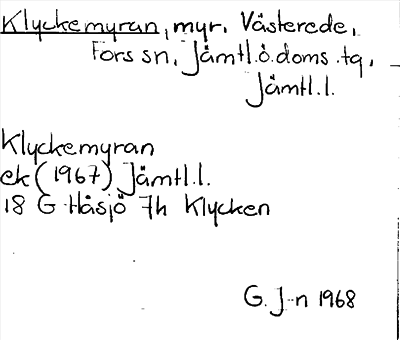 Klyckemyran, myr. Västerede,
Fors sn, Jämtl.ö.doms.tg,
Jämtl.l.
Klyckemyran
ek (1967) Jämtl.l.
18 G Håsjö 7h Klycken
G. J-n 1968